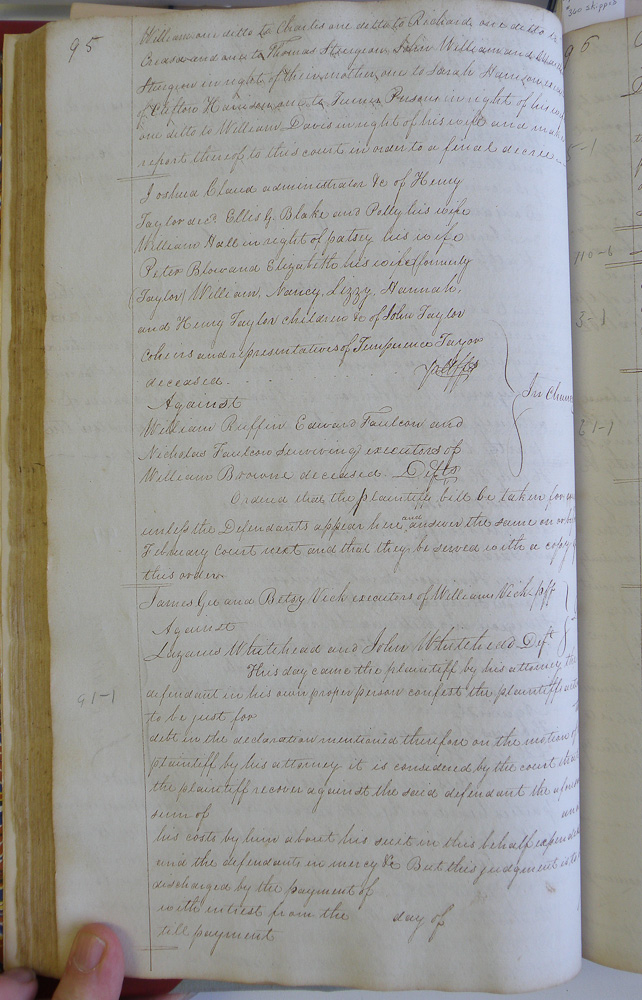 95
William one ditto to Charles one ditto to Richard one ditto to
Creasa and one to Thomas Sturgeon, John William and
Sturgeon in right of their mother, one to Sarah Harrison
of Clifton Harrison, one to James Parsons in right of his
one ditto to William Davis in right of his wife and make
report thereof to this court in order to a final decree
Joshua Claud administrator &c of Henry
Taylor decd. Ellis G. Blake and Polly his wife
William Hall in right of patsey his wife
Peter Blow and Elizabeth his wife (formerly
Taylor) William, Nancy, Lizzy, Hannah,
and Henry Taylor children &c of John Taylor
coheirs and representatives of Temperence Taylor
deceased. Paltffs
Against
In Chan
William Ruffin Edward Faulcon and
Nicholas Faulcon surviving executors of
William Browne deceased. Defts
Ordered that the plaintiffs bill be taken for
unless the Defendants appear here and answer the same on or
February Court next and that they be served with a copy of
this order.
James Gee and Betsy Vick executors of William Vick plff
Against
Whitehead and John Whitehead Deft
This day came the plaintiff by his attorney the
defendant in his own proper person confest the plaintiffs
91-1
to be just for
debt in the declaration mentioned therefore on the motion of
plaintiff by his attorney it is considered by the court that
the plaintiff recover against the said defendant the
sum of and
his costs by him about his suit in this behalf expended
and the defendants in mercy &c But this judgment is to
discharged by the payment of
with intrest from the day of
till payment
96
5-1
110-6
3-1
61-1